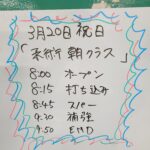 3月20日 祝日
「柔術 朝クラス」
8:00 オープン
8:15 打ち込み
8:45 スパー
9:30 補強
9:50 END